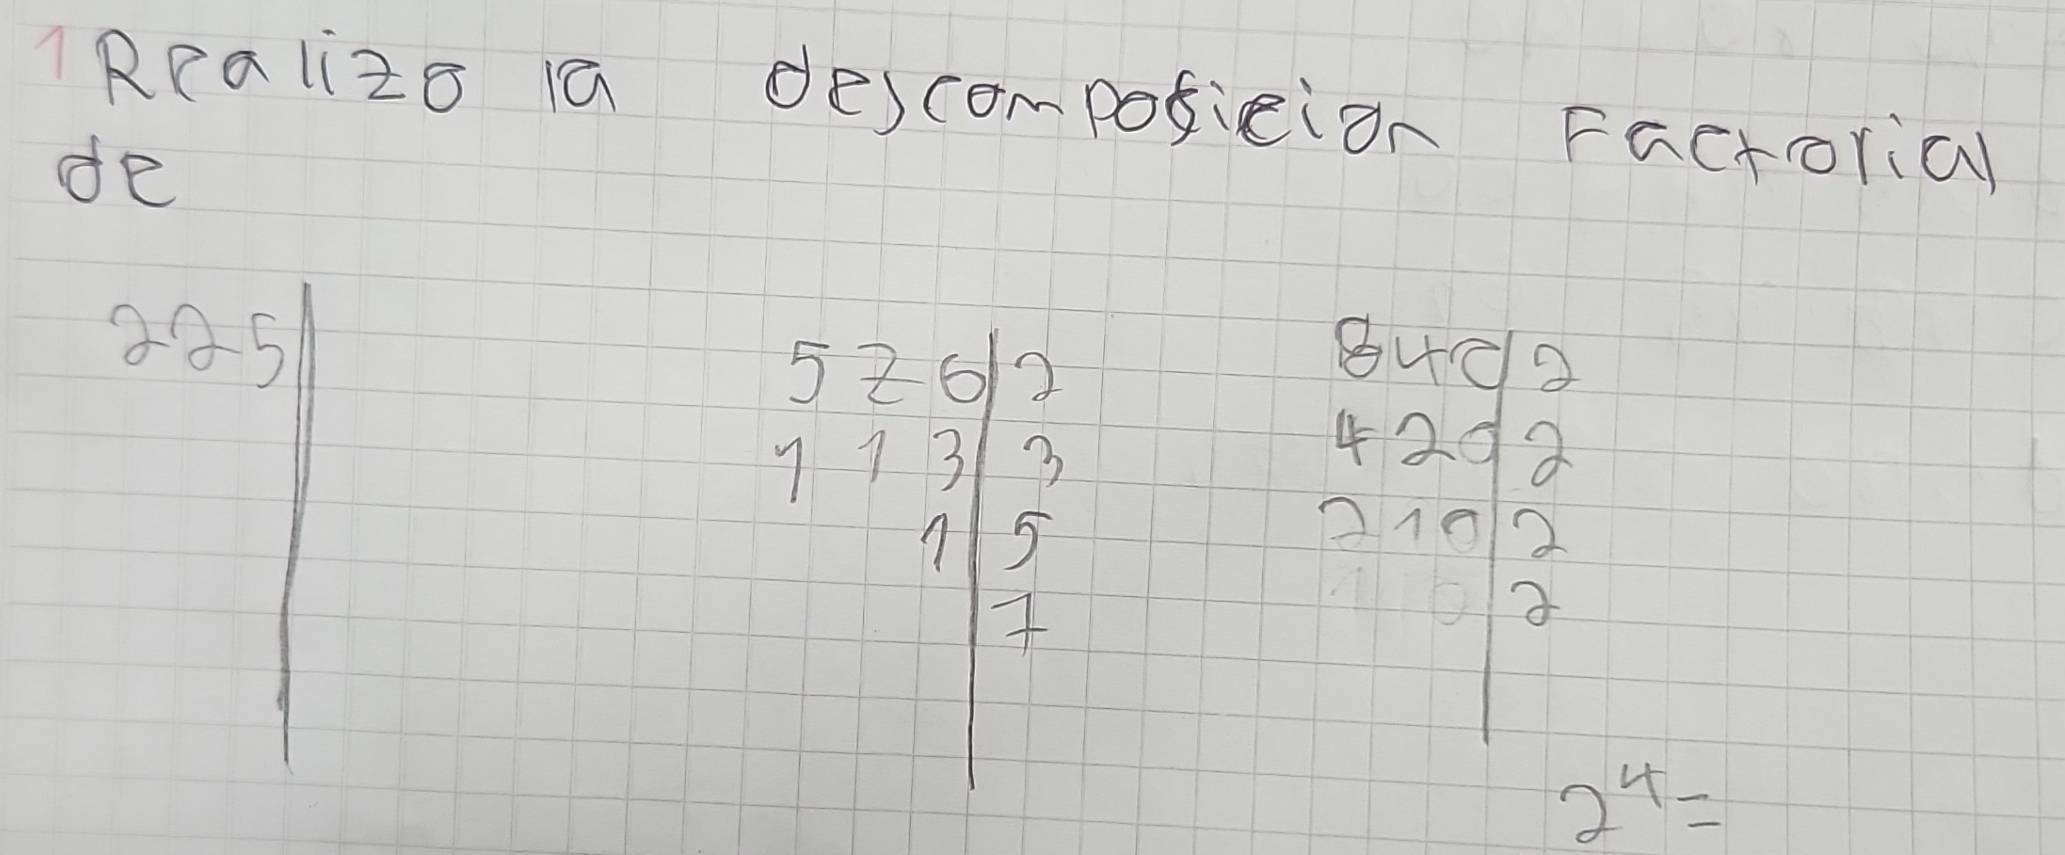 1 Realizo la descomposicion Factorial
de
225
576 2
113 3
1 5
7
840 2
420 2
210 2
1 0 2
2⁴=